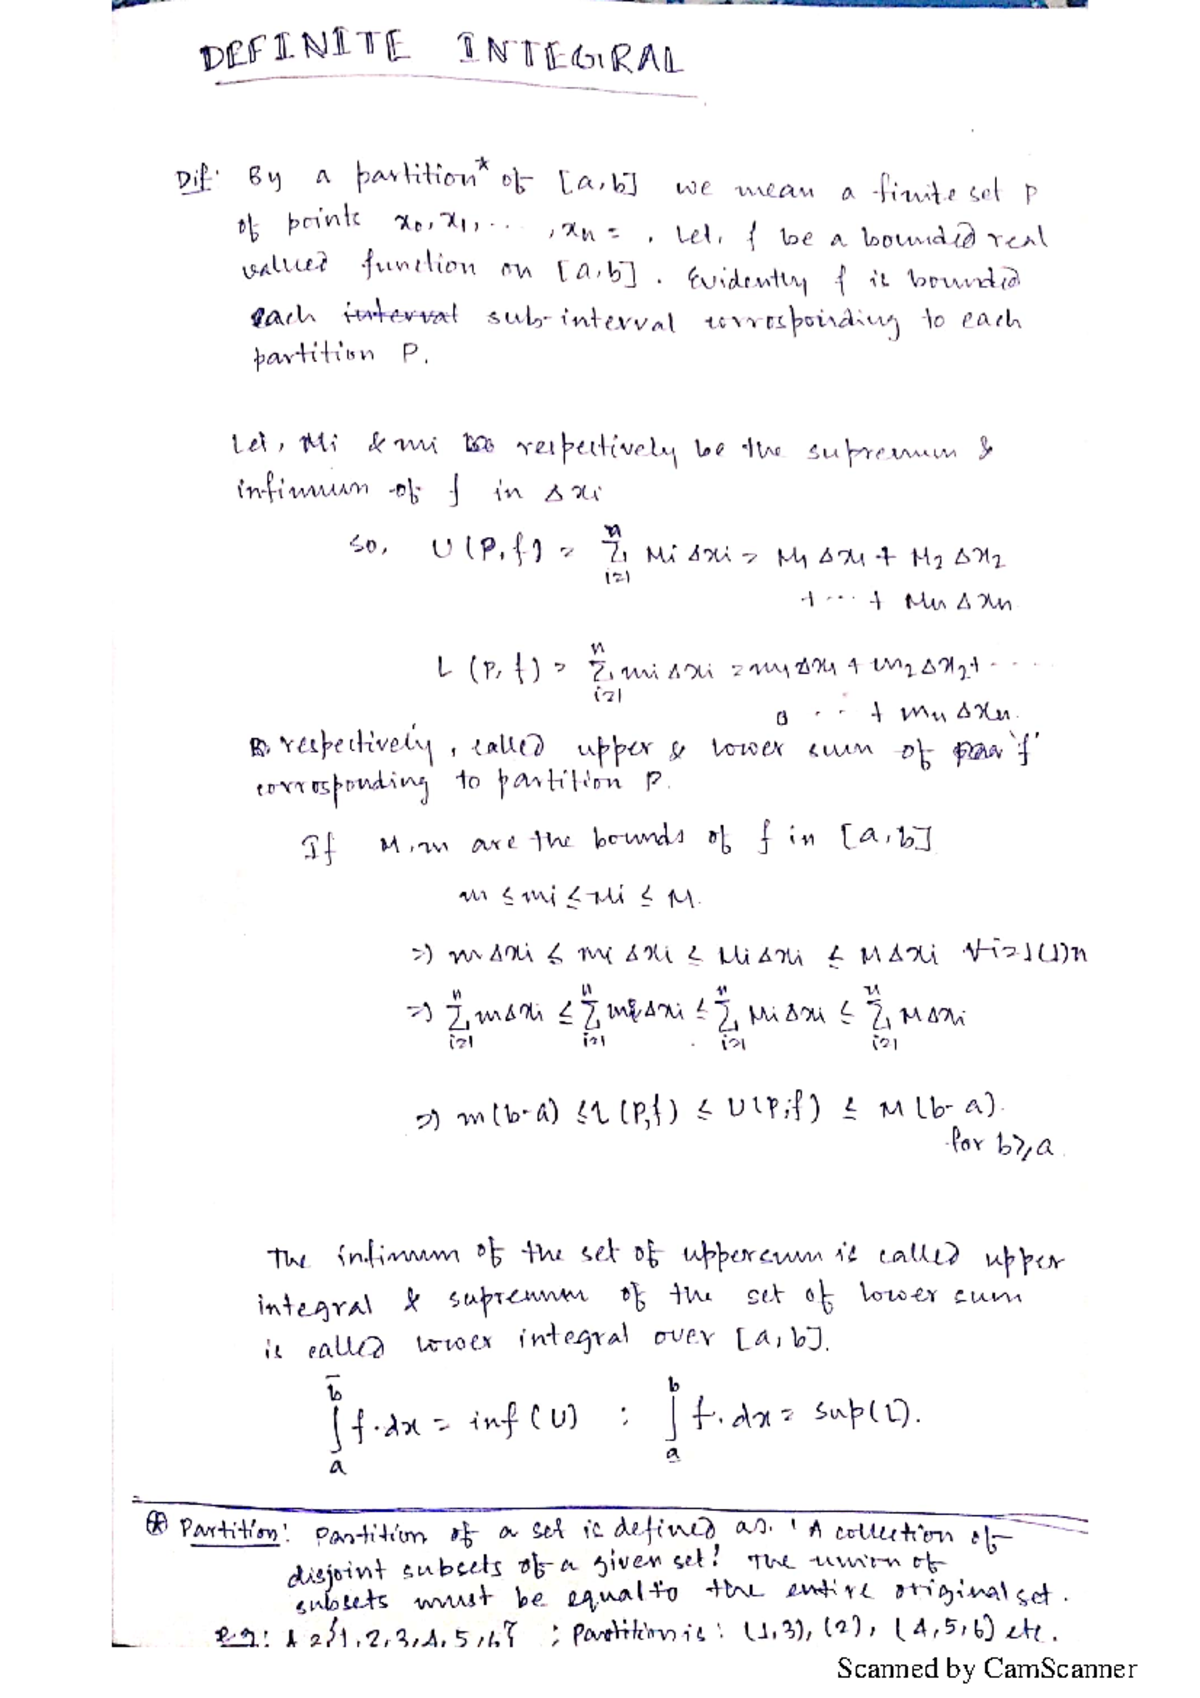 DEFINITE INTEGRAL
Dif: By a partition* of [a,b] we mean a finite set P
of points x₀, x₁, ... , xn = . Let, f be a bounded real
valued function on [a,b]. Evidently f is bounded
each interval sub-interval corrosponding to each
partition P.
Let, Mi & mi respectively be the supremum &
infimum of f in Δxi
So, U(P,f) = Σ Mi Δxi = M₁ Δx₁ + M₂ Δx₂
n i=1
+ ... + Mn Δxn
L (P, f) = Σ mi Δxi = m₁Δx₁ + m₂Δx₂+ ....
n i=1
... + mn Δxn.
respectively, called upper & lower sum of 'f'
corrosponding to partition P.
If M,m are the bounds of f in [a,b]
m ≤ mi ≤ Mi ≤ M.
=) mΔxi ≤ mi Δxi ≤ MiΔxi ≤ MΔxi ∀i=1(1)n
=) Σ mΔxi ≤ Σ miΔxi ≤ Σ MiΔxi ≤ Σ MΔxi
n i=1 n i=1 n i=1 n i=1
=) m(b-a) ≤ L(P,f) ≤ U(P,f) ≤ M(b-a).
for b≥a.
The infimum of the set of uppersum is called upper
integral & supremum of the set of lower sum
is called lower integral over [a,b].
∫ₐ^b̄ f.dx = inf(U) : ∫a̲^b f.dx = sup(L).
⊛ Partition: Partition of a set is defined as. 'A collection of
disjoint subsets of a given set! The union of
subsets must be equal to the entire original set.
e.g: A={1,2,3,4,5,6} ; Partition is: (1,3), (2), (4,5,6) etc.
Scanned by CamScanner